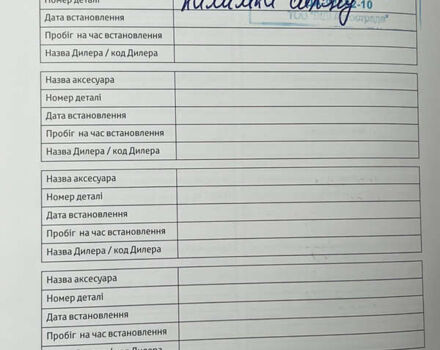 Номер деталі килимки
2-10
Дата встановлення
Пробіг на час встановлення
Назва Дилера / код Дилера
Назва аксесуара
Номер деталі
Дата встановлення
Пробіг на час встановлення
Назва Дилера / код Дилера
Назва аксесуара
Номер деталі
Дата встановлення
Пробіг на час встановлення
Назва Дилера / код Дилера
Назва аксесуара
Номер деталі
Дата встановлення
Пробіг на час встановлення
Назва Дилера / код Дилера